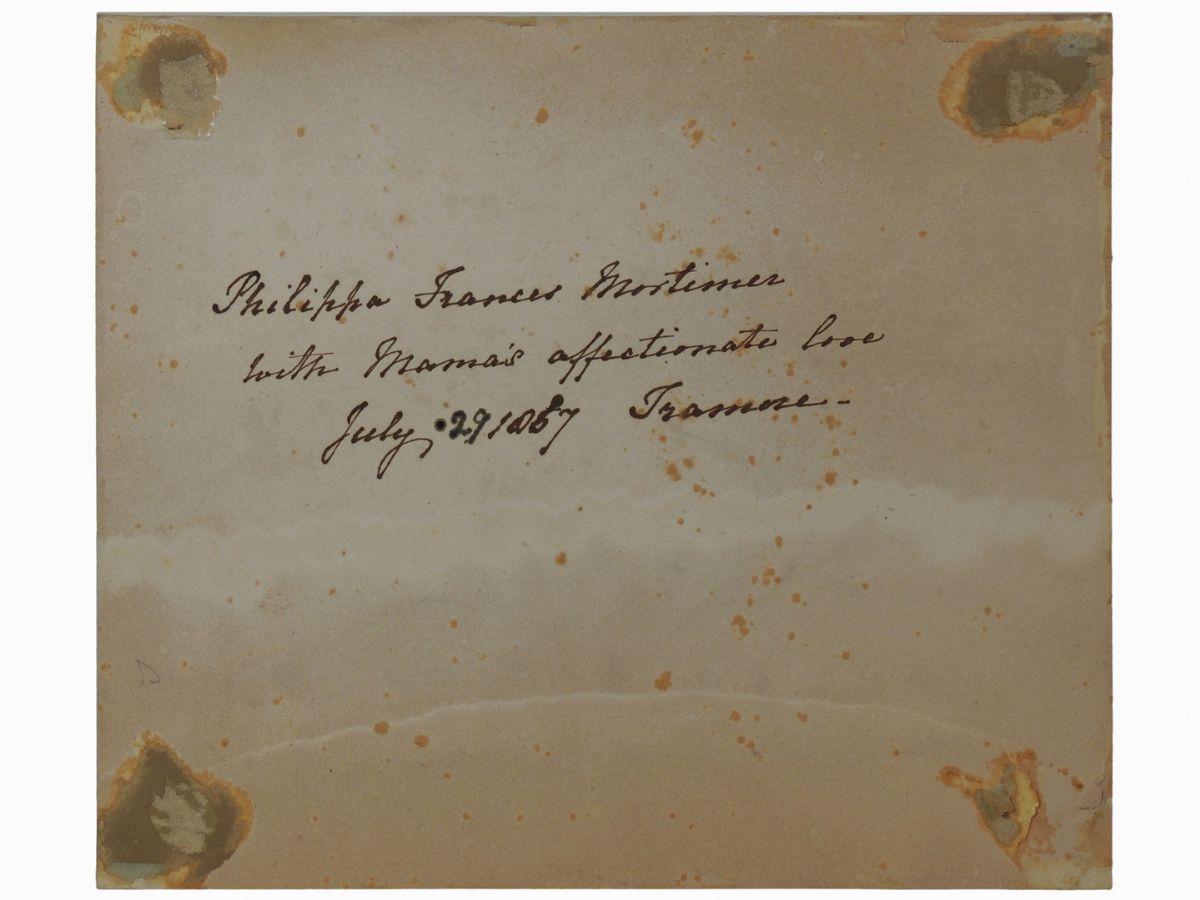 Philippa Frances Mortimer
with Mama's affectionate love
July 29 1867 Tramore -